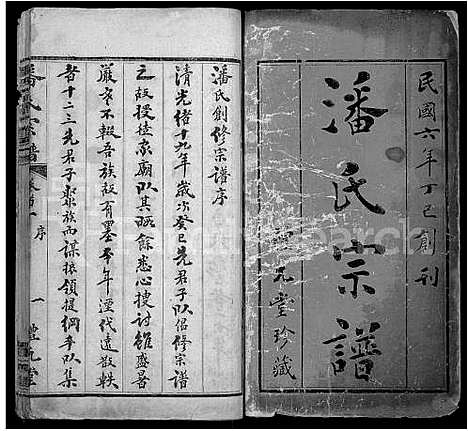 民國六年丁巳創刊
潘氏宗譜
元堂珍藏
潘氏創修宗譜序
清光緒十九年歲次癸巳先君子以倡修宗譜
之故授徒家廟以其暇餘悉心搜討雖盛暑
嚴寒不報吾族故有墨本年湮代遠散軼
者十二三先君子聚族而謀振領提綱爰以集
潘氏宗譜
卷首一
序
一
元堂